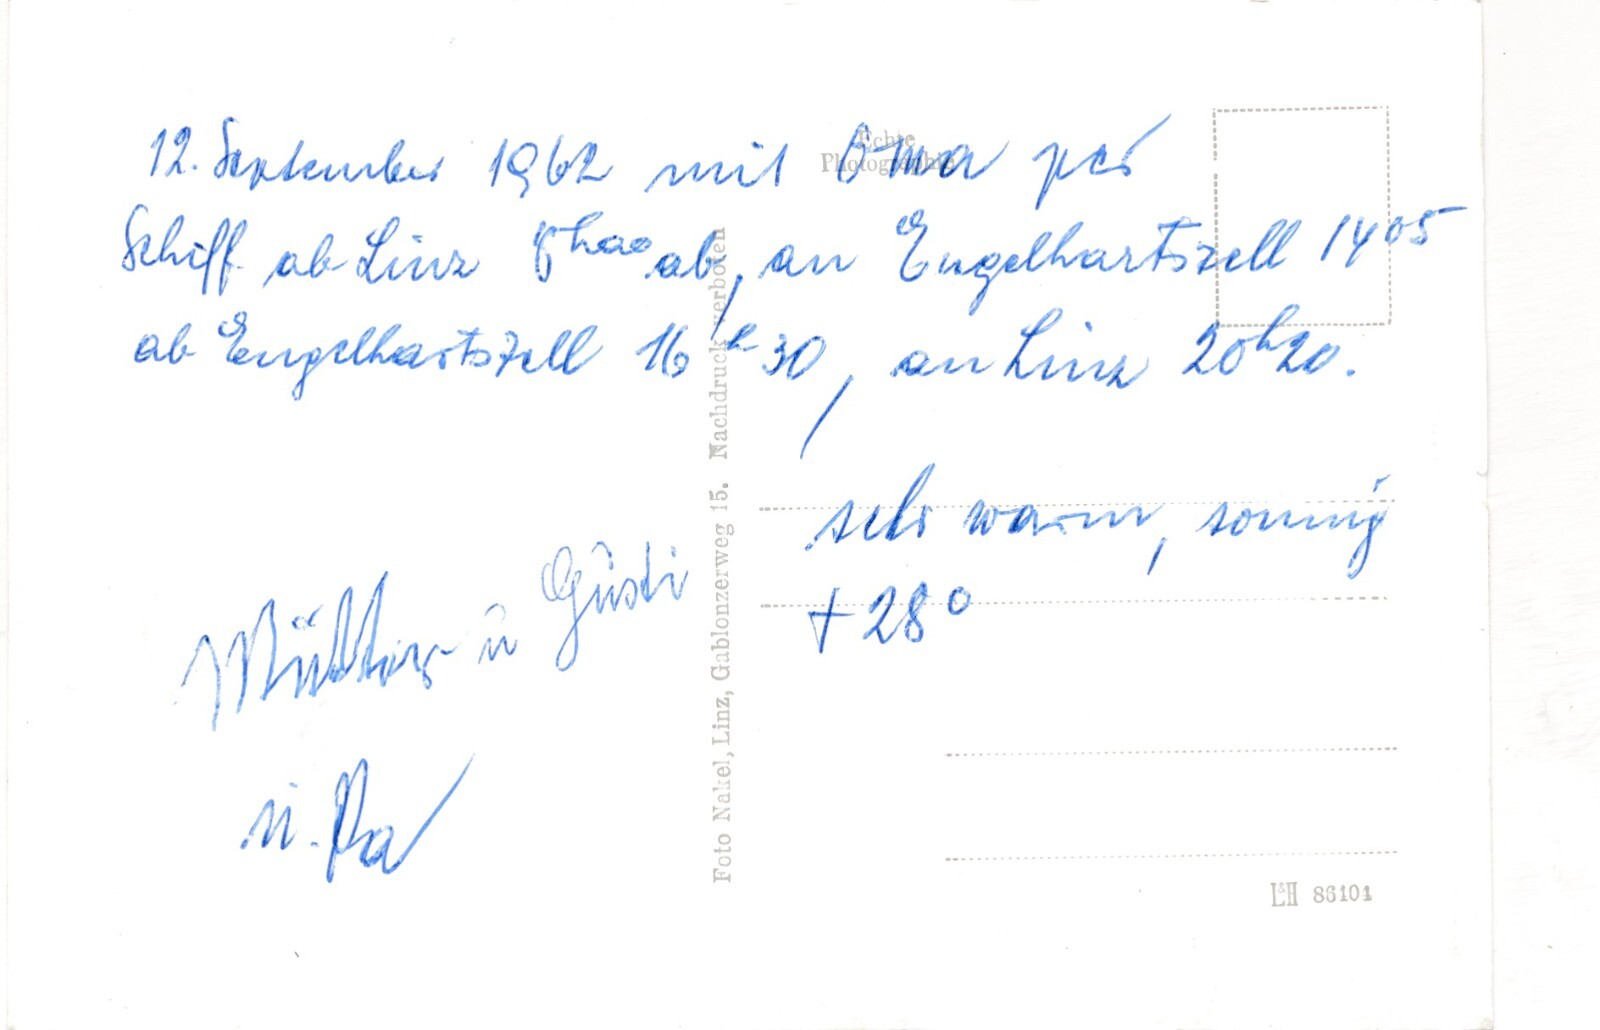 12. September 1962 mit Oma per
Schiff ab Linz 8h00 ab, an Engelhartszell 1405
ab Engelhartszell 16h30, an Linz 20h20.
sehr warm, sonnig
+28°
Mutter u Gusti
u. Pa
Echte
Photographie
Foto Nakel, Linz, Gablonzerweg 15. Nachdruck verboten
L&H 86101